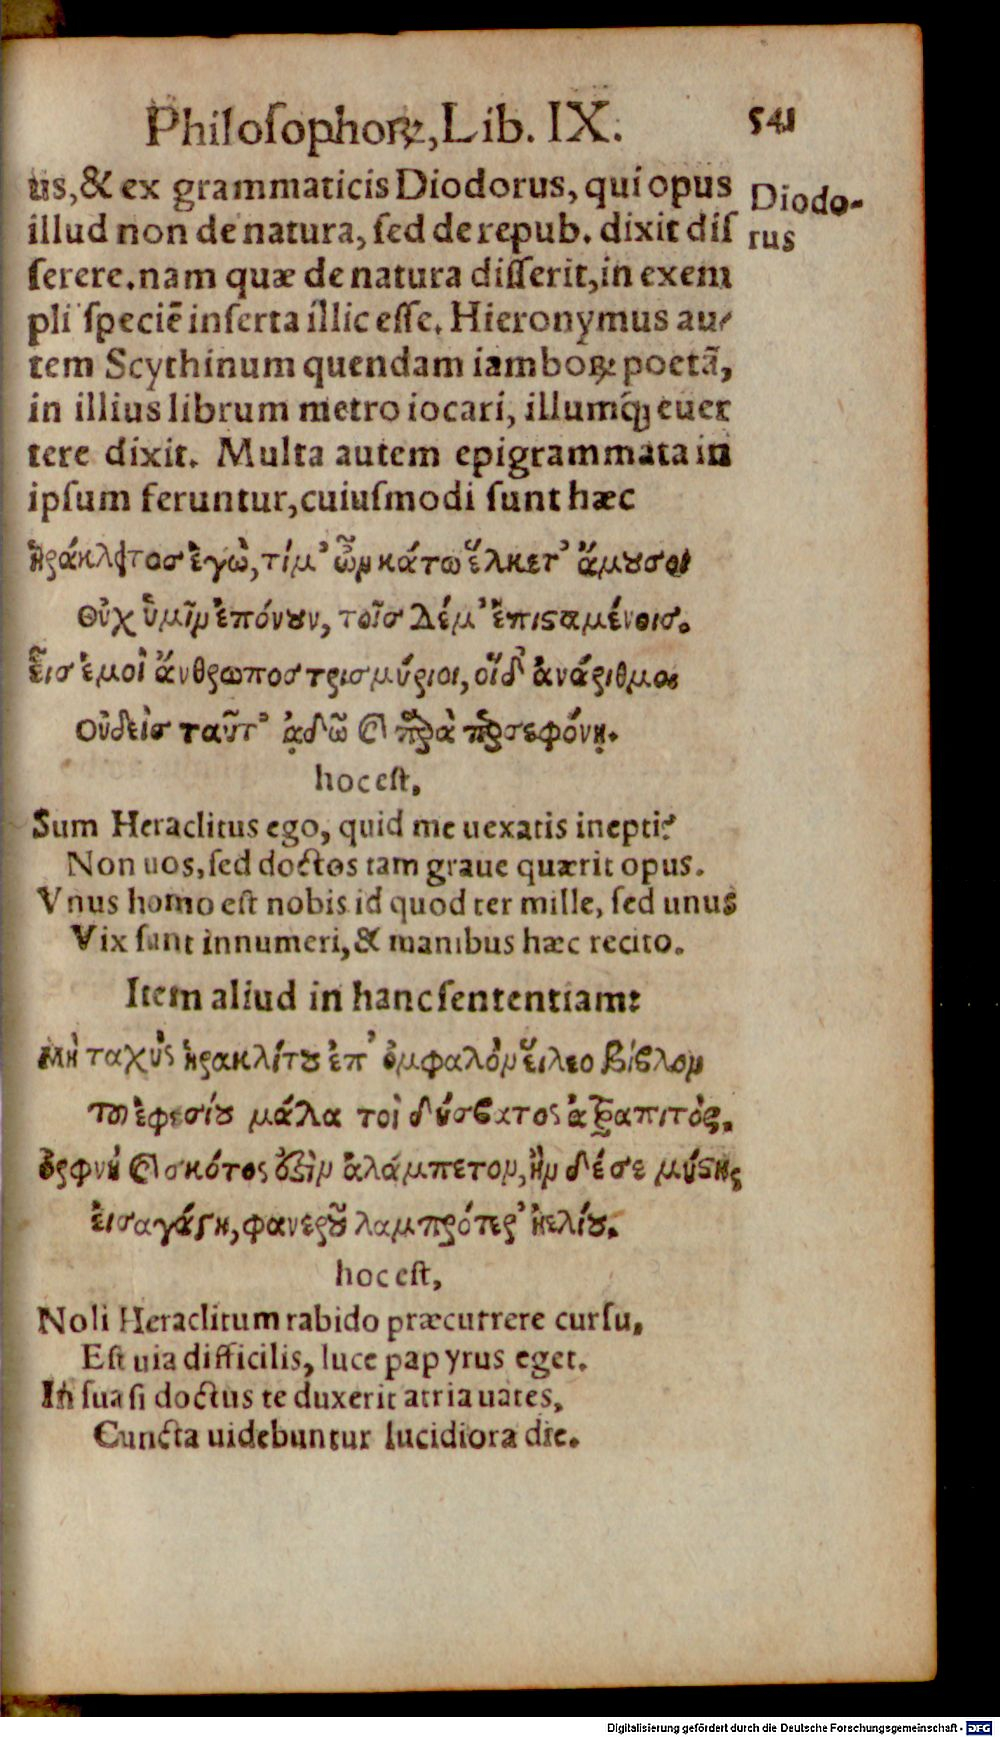 Philosophoꝝ, Lib. IX. 541
us, & ex grammaticis Diodorus, qui opus
Diodo-
rus
illud non de natura, sed de repub. dixit dis
serere. nam quæ de natura disserit, in exem
pli speciē inserta illic esse. Hieronymus au-
tem Scythinum quendam iamboꝝ poetā,
in illius librum metro iocari, illumq́ꝫ euer
tere dixit. Multa autem epigrammata in
ipsum feruntur, cuiusmodi sunt hæc
Ἡράκλειτος ἐγὼ, τί μ’ ὦν κάτω ἕλκετ’ ἄμουσοι
Οὐχ ὑμῖν ἐπόνουν, τοῖς δέ μ’ ἐπισταμένοις.
Εἷς ἐμοὶ ἄνθρωπος τρισμύριοι, οἵ δ’ ἀνάριθμοι
Οὐδεὶς ταῦτ’ ᾀδῶ καὶ παρὰ περσεφόνῃ.
hoc est,
Sum Heraclitus ego, quid me uexatis inepti?
Non uos, sed doctos tam graue quærit opus.
Vnus homo est nobis id quod ter mille, sed unus
Vix sunt innumeri, & manibus hæc recito.
Item aliud in hanc sententiam:
Μὴ ταχὺς ἡρακλίτου ἐπ’ ὀμφαλὸν εἵλεο βίβλον
τοῦ ἐφεσίου μάλα τοὶ δύσβατος ἀτραπιτός.
ὄρφνη καὶ σκότος ἐστὶν ἀλάμπετον, ἢν δέ σε μύστης
εἰσαγάγῃ, φανεροῦ λαμπρότερ’ ἠελίου.
hoc est,
Noli Heraclitum rabido præcurrere cursu,
Est uia difficilis, luce papyrus eget.
In sua si doctus te duxerit atria uates,
Cuncta uidebuntur lucidiora die.
Digitalisierung gefördert durch die Deutsche Forschungsgemeinschaft - DFG